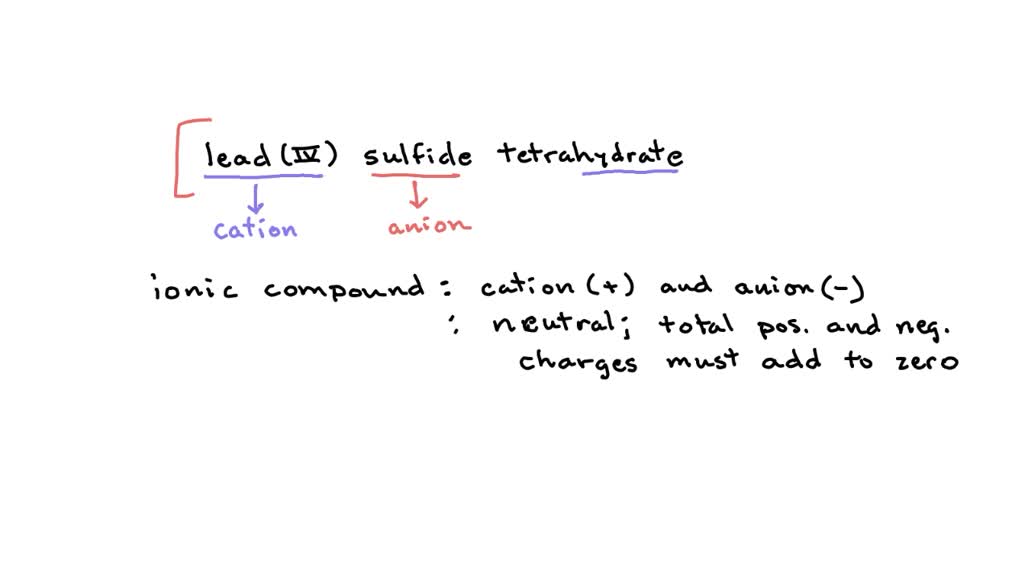 lead (IV) sulfide tetrahydrate
cation anion
ionic compound : cation (+) and anion (-)
: neutral; total pos. and neg.
charges must add to zero